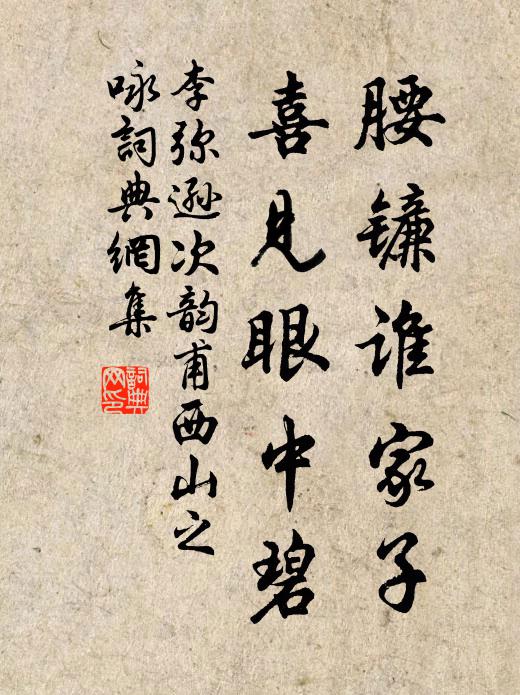 腰镰谁家子
喜见眼中碧
李弥逊次韵甫西山之
咏詞典網集
詞典網印